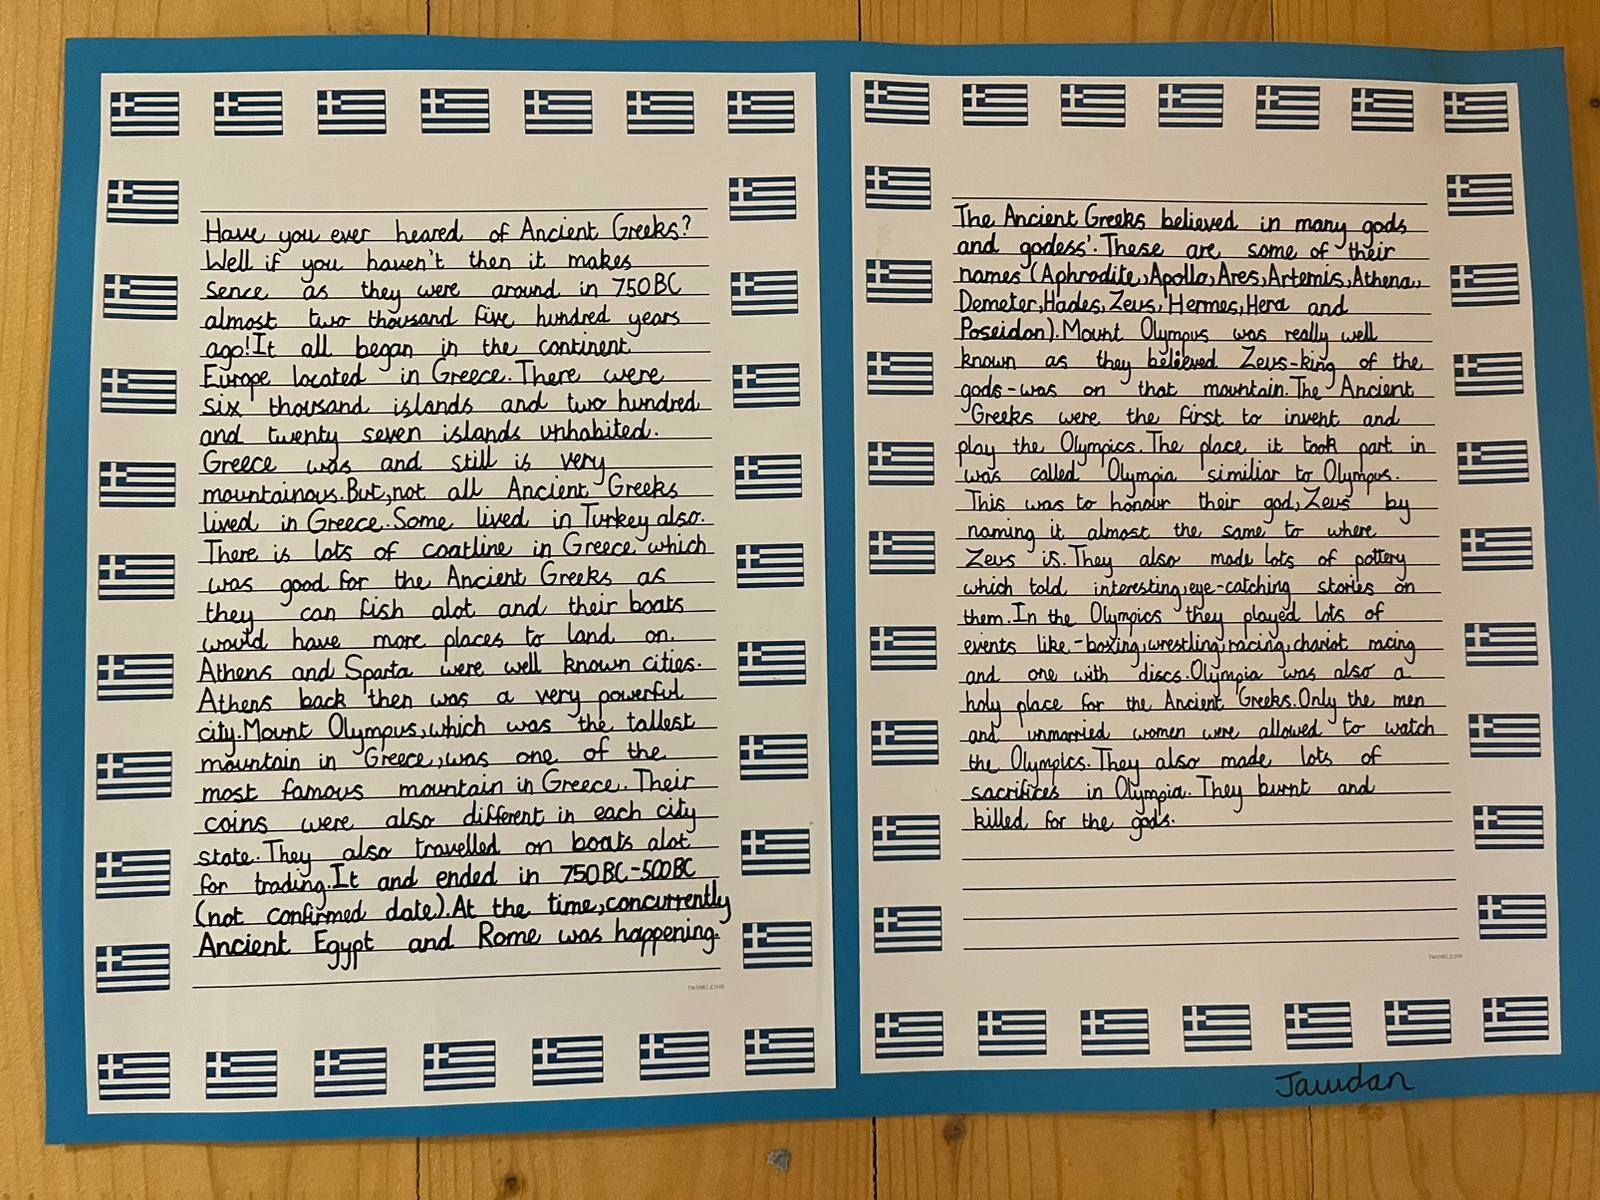 Have you ever heared of Ancient Greeks?
Well if you haven't then it makes
sence as they were around in 750BC
almost two thousand five hundred years
ago!It all began in the continent
Europe located in Greece.There were
six thousand islands and two hundred
and twenty seven islands unhabited.
Greece was and still is very
mountainous.But,not all Ancient Greeks
lived in Greece.Some lived in Turkey also.
There is lots of coatline in Greece which
was good for the Ancient Greeks as
they can fish alot and their boats
would have more places to land on.
Athens and Sparta were well known cities.
Athens back then was a very powerful
city.Mount Olympus,which was the tallest
mountain in Greece,was one of the
most famous mountain in Greece. Their
coins were also different in each city
state.They also travelled on boats alot
for trading.It and ended in 750BC-500BC
(not confirmed date).At the time,concurrently
Ancient Egypt and Rome was happening.
twinkl.com
The Ancient Greeks believed in many gods
and godess'.These are some of their
names (Aphrodite,Apollo,Ares,Artemis,Athena,
Demeter,Hades,Zeus,Hermes,Hera and
Poseidon).Mount Olympus was really well
known as they believed Zeus-king of the
gods-was on that mountain.The Ancient
Greeks were the first to invent and
play the Olympics.The place it took part in
was called Olympia similiar to Olympus.
This was to honour their god,Zeus by
naming it almost the same to where
Zeus is.They also made lots of pottery
which told interesting,eye-catching stories on
them.In the Olympics they played lots of
events like-boxing,wrestling,racing,chariot racing
and one with discs.Olympia was also a
holy place for the Ancient Greeks.Only the men
and unmarried women were allowed to watch
the Olympics.They also made lots of
sacrifices in Olympia. They burnt and
killed for the gods.
twinkl.com
Jawdan